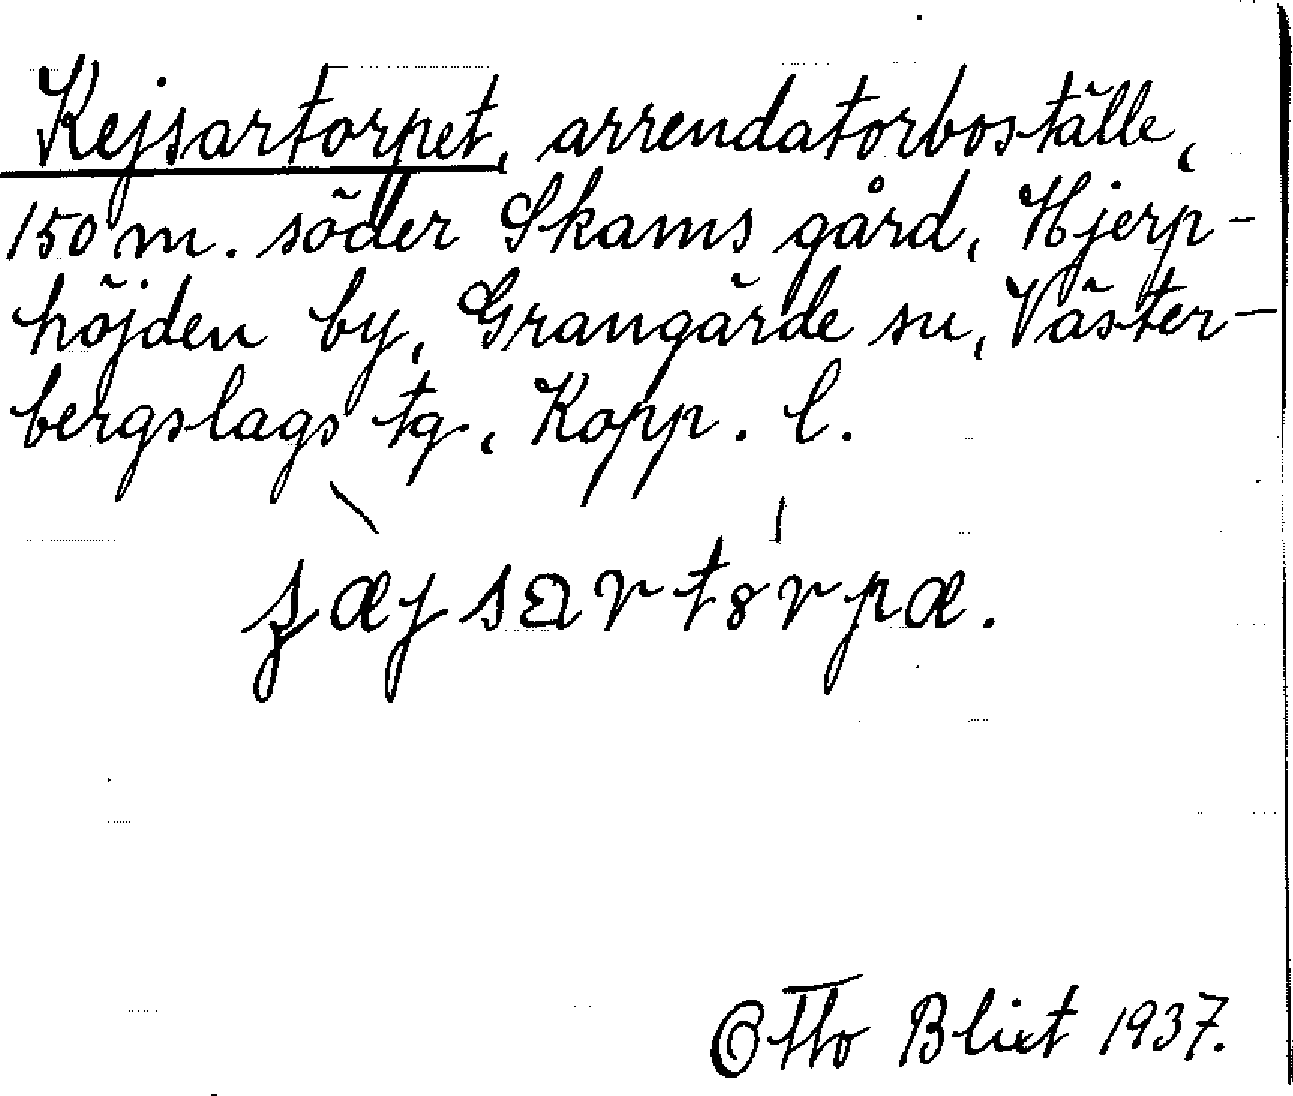 Kejsartorpet, arrendatorboställe,
150 m. söder Skams gård, Hjerp-
höjden by, Grangärde sn, Väster-
bergslags tg, Kopp. l.
ʂæjsartȣrpæ.
Otto Blixt 1937.